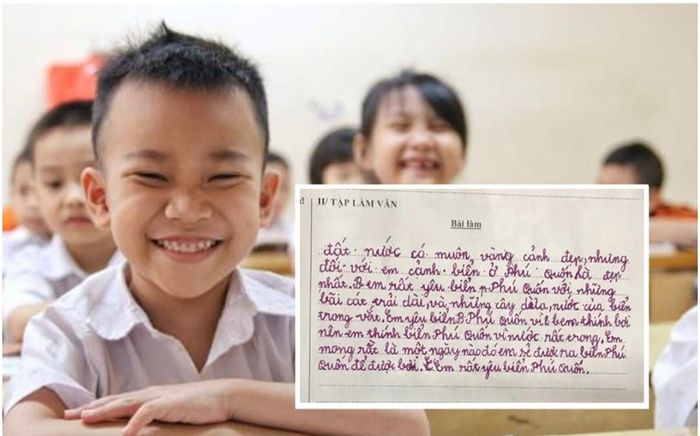 đ
II/ TẬP LÀM VĂN
Bài làm
đất nước có muôn, vàng cảnh đẹp, nhưng
đối với em cảnh biển ở Phú Quốn là đẹp
nhất. B em rất yêu biển p Phú Quốn với những
bãi cát trải dài, và, những cây dừa, nước của biển
trong vắt. Em yêu biển B Phú Quốn vì t bem thính bơi
nên em thính biển Phú Quốn vì nước rất trong, Em
mong rắt là một ngày nào đo em sẻ được ra biển Phú
Quốn để được bơi. E Em rất yêu biển Phú Quốn.